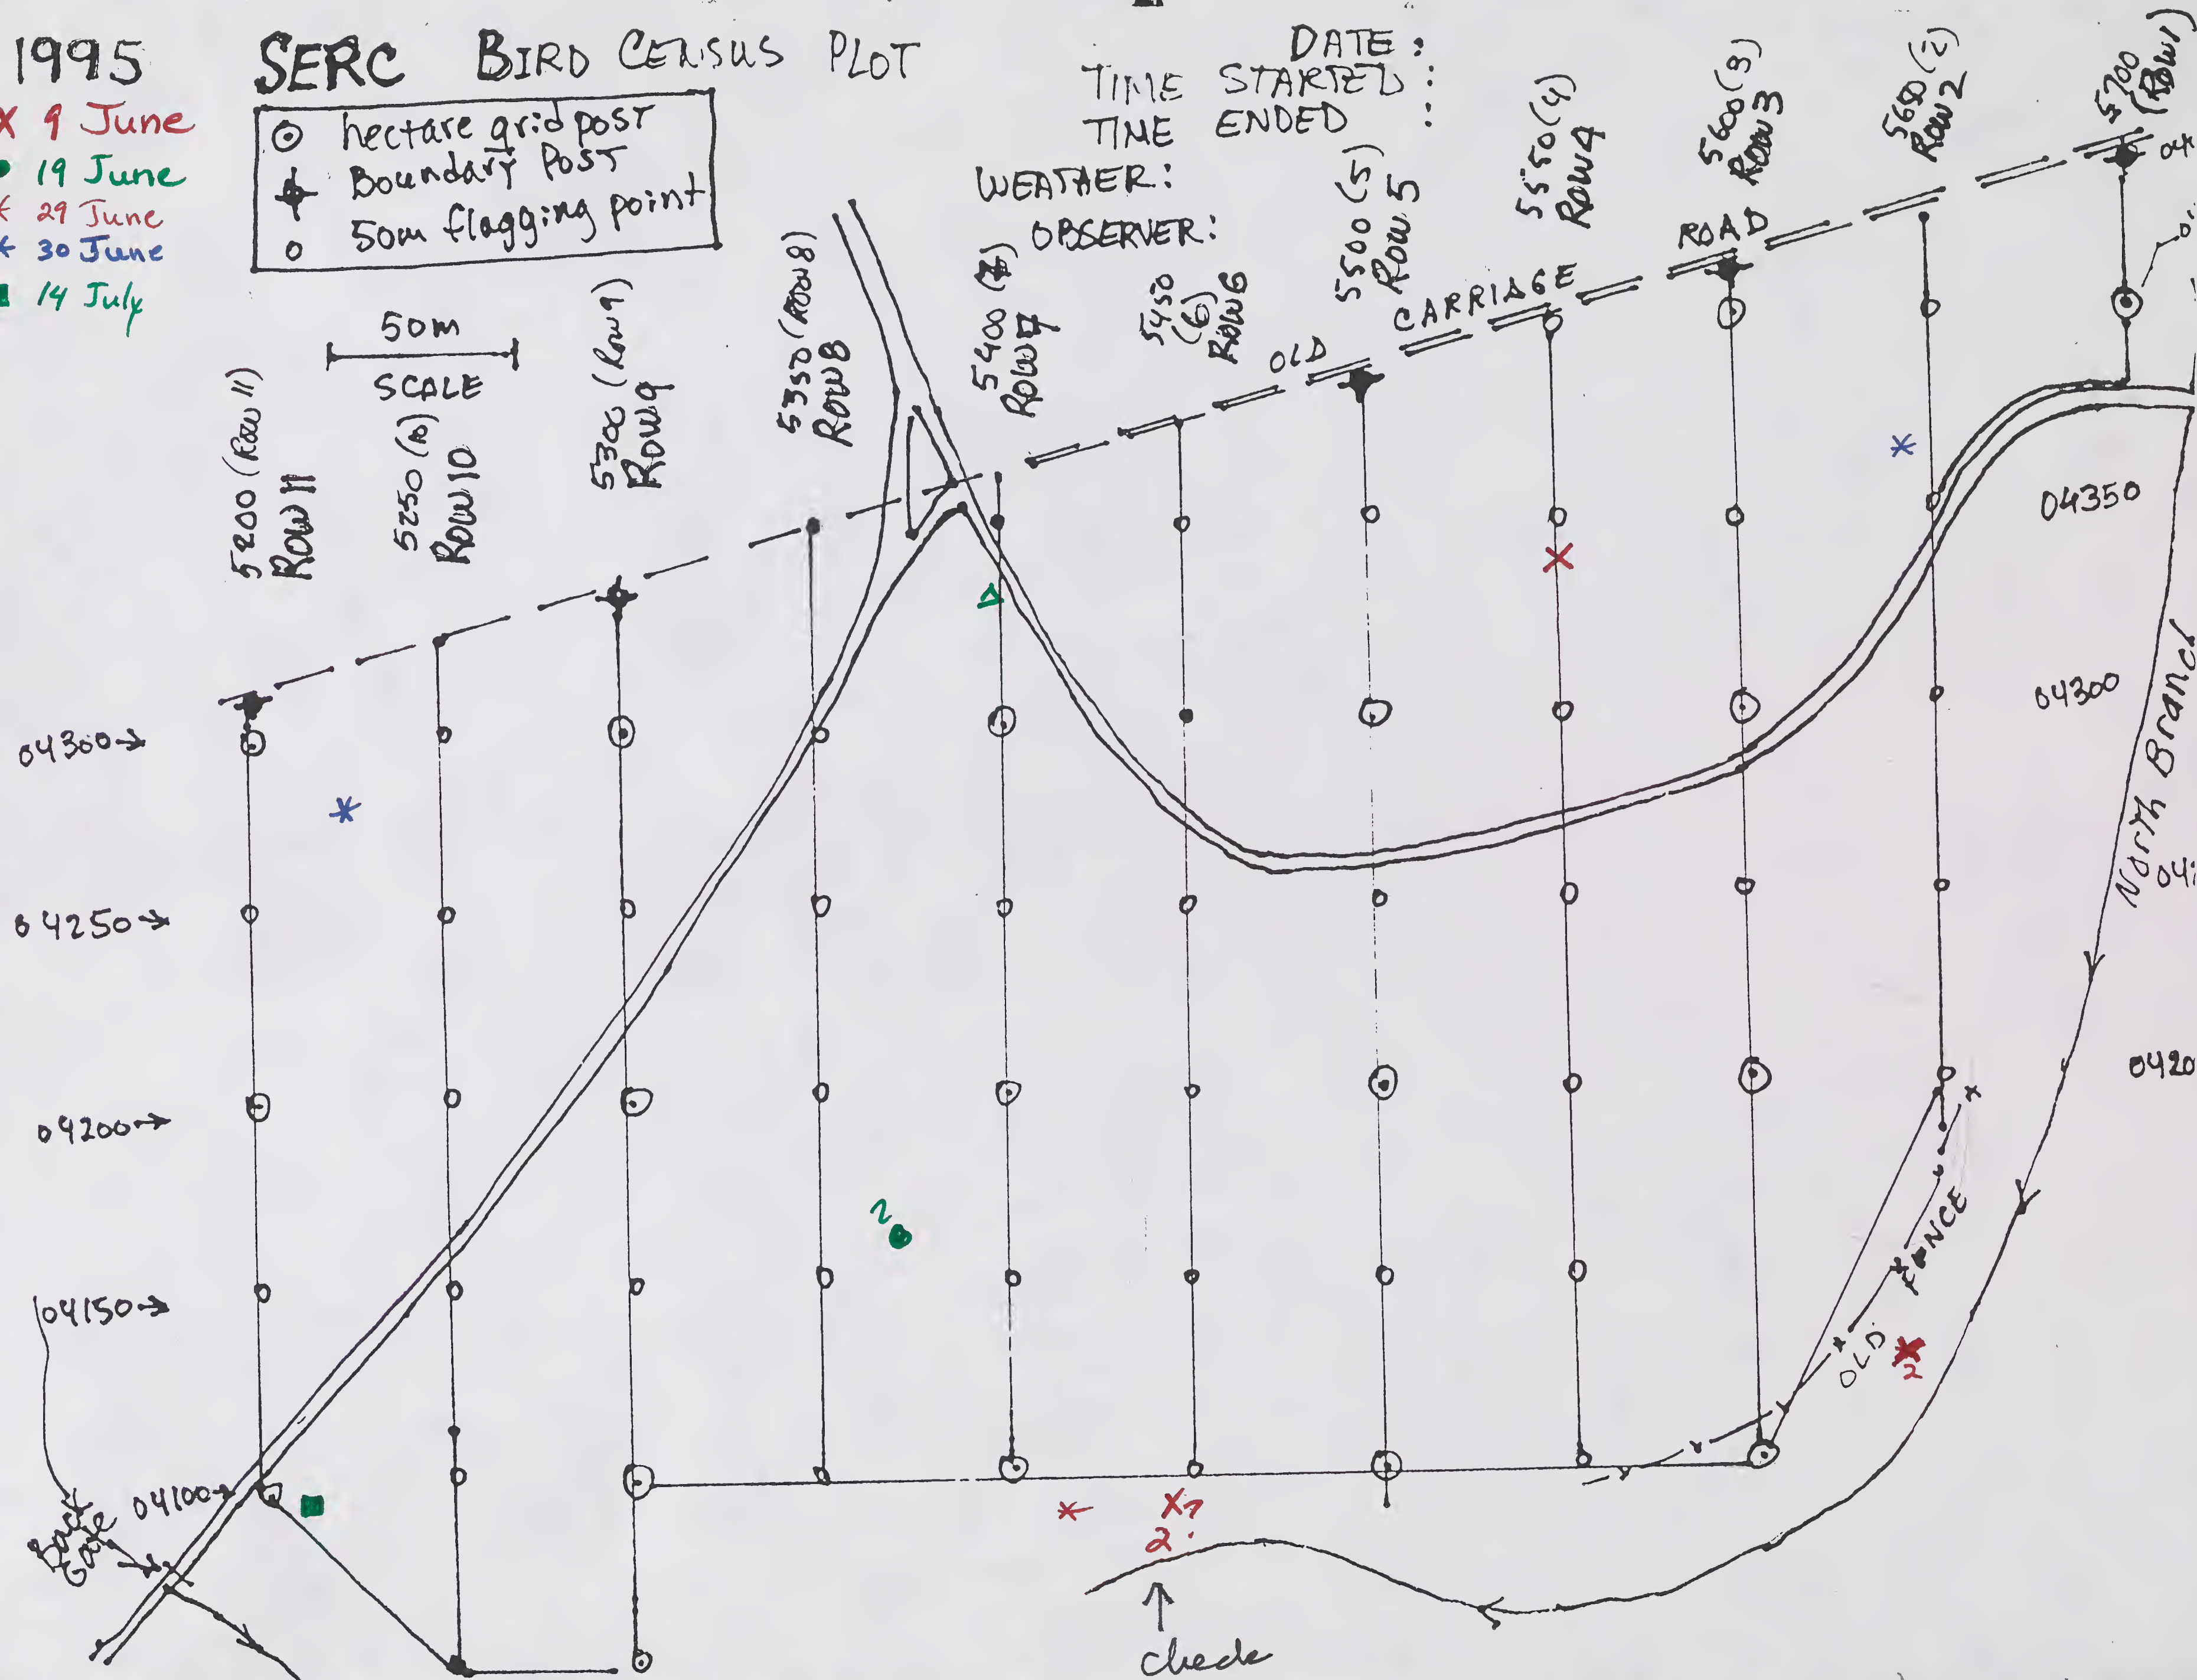 1995
SERC BIRD CENSUS PLOT
X 9 June
19 June
29 June
* 30 June
14 July
hectare grid post
Boundary Post
50m flagging point
DATE :
TIME STARTED :
TIME ENDED :
WEATHER:
OBSERVER:
50m
SCALE
5200 (Row 11)
Row 11
5250 (10)
Row 10
5300 (Row 9)
Row 9
5350 (Row 8)
Row 8
5400 (7)
Row 7
5450
(6)
Row 6
5500 (5)
Row 5
5550 (4)
Row 4
5600 (3)
Row 3
5650 (2)
Row 2
5700
(Row 1)
OLD CARRIAGE ROAD
04350
04300
North Branch
04300→
04250→
04200→
0420
04150→
04100→
Back
Gate
2
OLD FENCE
2
X?
2
check